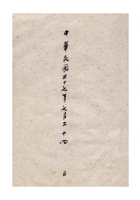 中華民國五十七年七月二十四日